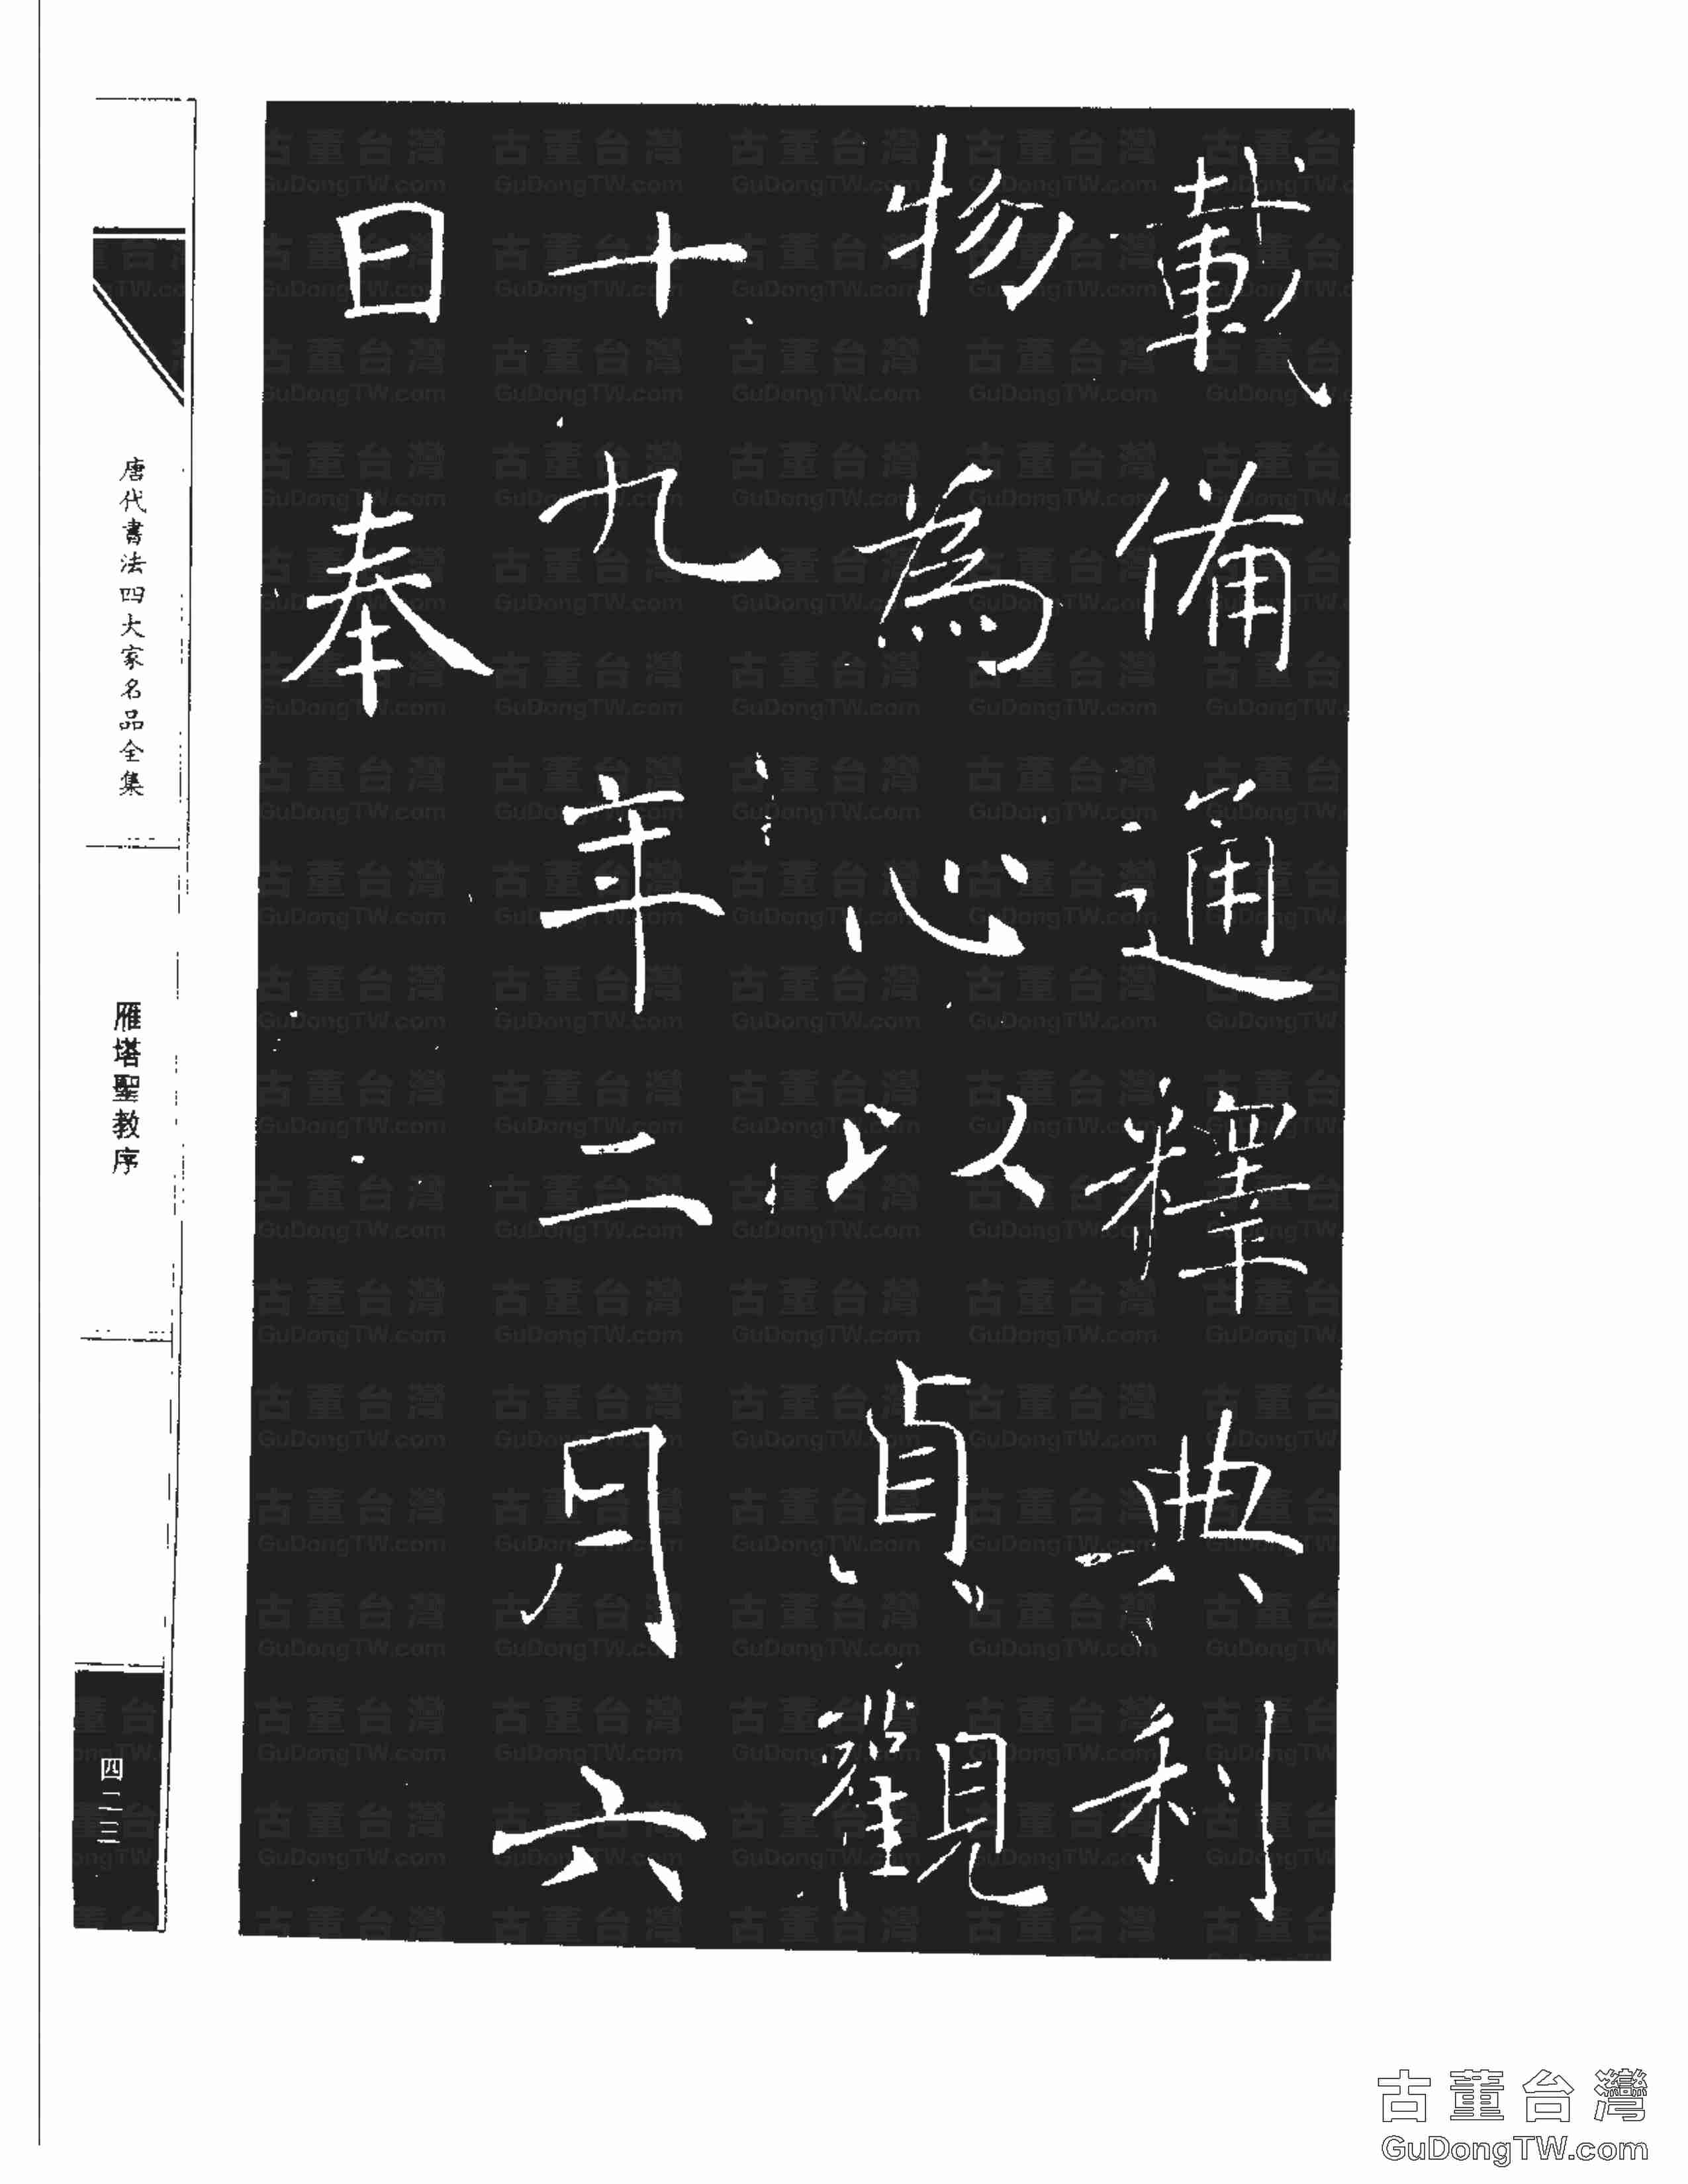 載備通釋典利
物為心以貞觀
十九年二月六
日奉
唐代書法四大家名品全集
雁塔聖教序
四二三
古董台灣
GuDongTW.com